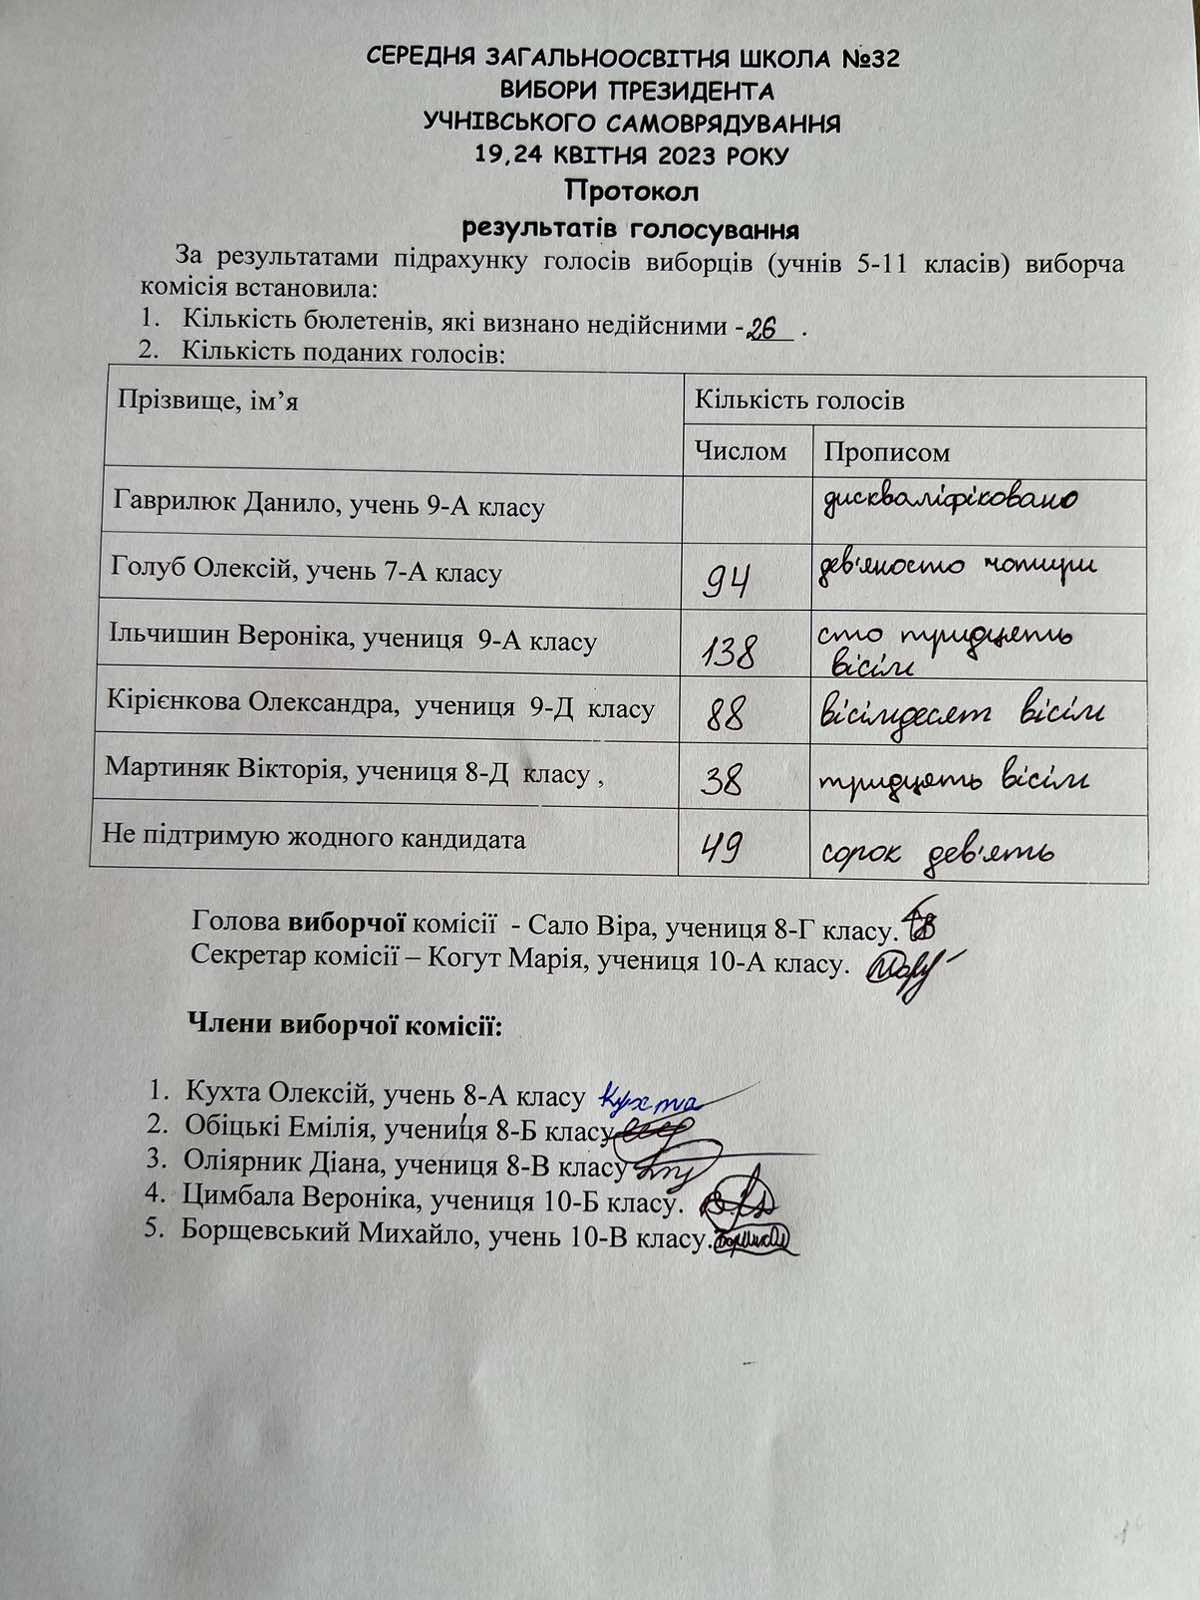 СЕРЕДНЯ ЗАГАЛЬНООСВІТНЯ ШКОЛА №32
ВИБОРИ ПРЕЗИДЕНТА
УЧНІВСЬКОГО САМОВРЯДУВАННЯ
19,24 КВІТНЯ 2023 РОКУ
Протокол
результатів голосування
За результатами підрахунку голосів виборців (учнів 5-11 класів) виборча
комісія встановила:
1. Кількість бюлетенів, які визнано недійсними - 26 .
2. Кількість поданих голосів:
Прізвище, ім’я Кількість голосів
Числом Прописом
Гаврилюк Данило, учень 9-А класу дискваліфіковано
Голуб Олексій, учень 7-А класу 94 дев'яносто чотири
Ільчишин Вероніка, учениця 9-А класу 138 сто тридцять
вісім
Кірієнкова Олександра, учениця 9-Д класу 88 вісімдесят вісім
Мартиняк Вікторія, учениця 8-Д класу , 38 тридцять вісім
Не підтримую жодного кандидата 49 сорок дев'ять
Голова виборчої комісії - Сало Віра, учениця 8-Г класу.
Секретар комісії – Когут Марія, учениця 10-А класу.
Члени виборчої комісії:
1. Кухта Олексій, учень 8-А класу Кухта
2. Обіцькі Емілія, учениця 8-Б класу
3. Оліярник Діана, учениця 8-В класу
4. Цимбала Вероніка, учениця 10-Б класу.
5. Борщевський Михайло, учень 10-В класу.